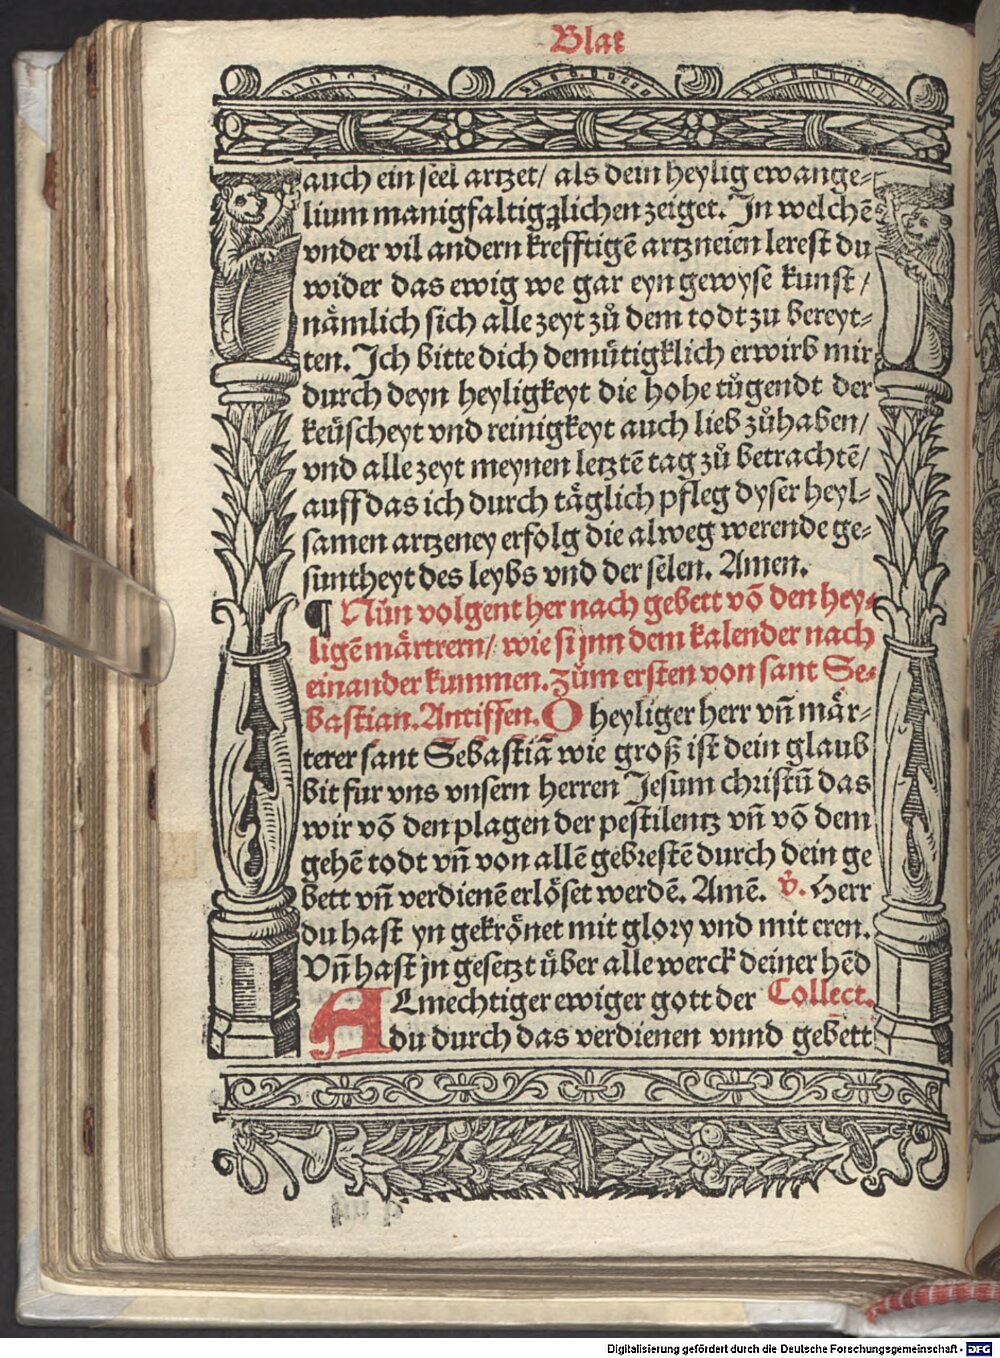 Blat
auch ein seel artzet/ als dein heylig ewange⸗
lium manigfaltigklichen zeiget. In welchē
vnder vil andern krefftigē artzneien lerest du
wider das ewig we gar eyn gewyse kunst/
nämlich sich alle zeyt zů dem todt zu bereyt⸗
ten. Ich bitte dich demütigklich erwirb mir
durch deyn heyligkeyt die hohe tůgendt der
keüscheyt vnd reinigkeyt auch lieb zůhaben/
vnd alle zeyt meynen letztē tag zů betrachtē/
auff das ich durch täglich pfleg dyser heyl⸗
samen artzeney erfolg die alweg werende ge⸗
suntheyt des leybs vnd der selen. Amen.
¶ Nůn volgent her nach gebett vō den hey⸗
ligē märtrern/ wie si jnn dem kalender nach
einander kummen. zům ersten von sant Se⸗
bastian. Antiffen. O heyliger herr vn̄ mär⸗
terer sant Sebastiā wie groß ist dein glaub
bit fur vns vnsern herren Jesum christū das
wir vō den plagen der pestilentz vn̄ vō dem
gehē todt vn̄ von allē gebrestē durch dein ge
bett vn̄ verdienē erlöset werdē. Amē. v̊. Herr
du hast yn gekrönet mit glory vnd mit eren.
Vn̄ hast jn gesetzt über alle werck deiner hēd
ALmechtiger ewiger gott der Collect.
du durch das verdienen vnnd gebett
Digitalisierung gefördert durch die Deutsche Forschungsgemeinschaft - DFG